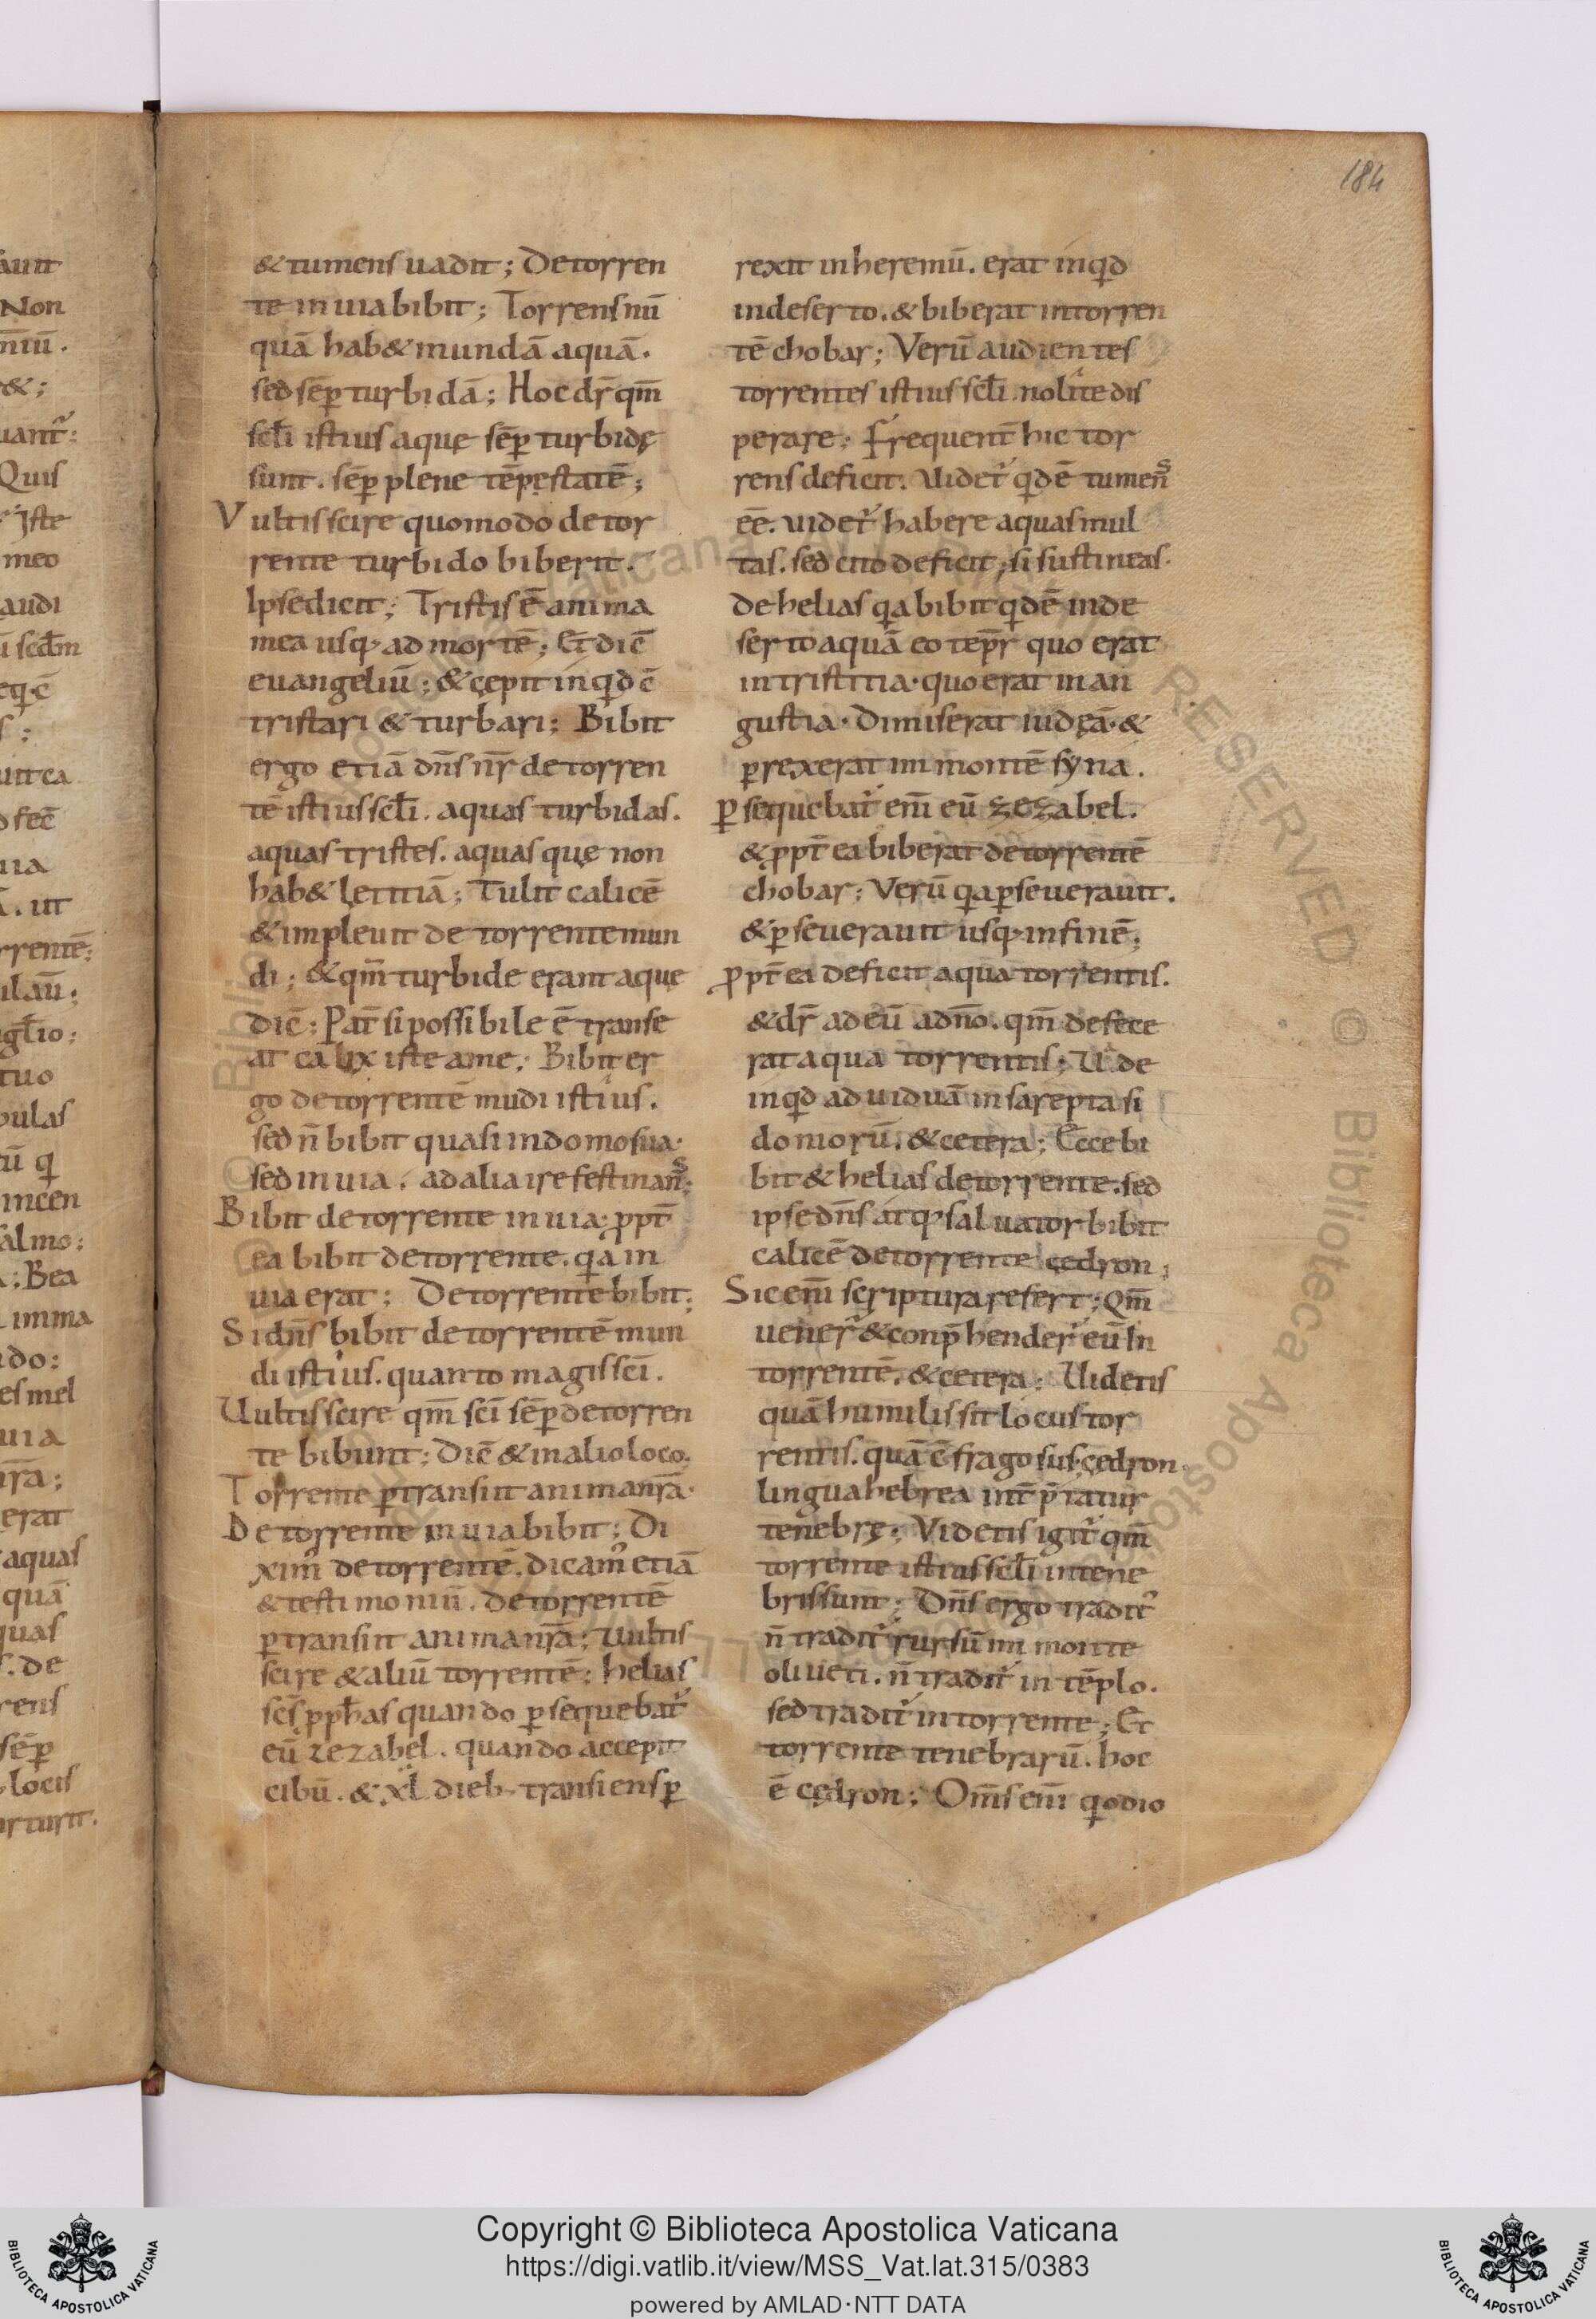 184
auit
Non
nīū.
&;
uant᷑:
Quis
iste
meo
audi
i scd̄m
eq̨ ē
s;
uit ca
o fec̄
uia
ā. ut
rrentē;
ilāū;
gl̄io;
tuo
pulas
tū q
incen
salmo;
a; Bea
imma
ndo;
es mel
uia
nr̄a;
erat
aquas
quā
quas
s. de
rens
sēp̱
locis
urturit.
& tumens uadit; De torren
te in uia bibit; Torrens nū
quā hab& mundā aquā.
sed sēp̱ turbidā; Hoc dr̄ qm̄
scl̄i istius aquę sēp̱ turbidę
sunt. sēp̱ plene tēpestatē;
Vultis scire quomodo de tor
rente turbido biberit.
Ipse dicit; Tristis ē anima
mea usq; ad mortē; Et dic̄
euangeliū; & cępit inqd ē
tristari & turbari; Bibit
ergo etiā dn̄s nr̄ de torren
tē istius scl̄i. aquas turbidas.
aquas tristes. aquas quę non
hab& lętitiā; Tulit calicē
& impleuit de torrente mun
di; & qm̄ turbide erant aquę
dic̄; Pat̄ si possibile ē transe
at calix iste a me; Bibit er
go de torrentē mudi istius.
sed n̄ bibit quasi in domo sua.
sed in uia. ad alia ire festinans;
Bibit de torrente in uia; ꝓpt̄
ea bibit de torrente. qa in
uia erat; De torrentē bibit;
Si dn̄s bibit de torrentē mun
di istius. quanto magis sc̄i.
Uultis scire qm̄ sc̄i sēp̱ de torren
te bibunt; Dic̄ & in alio loco.
Torrente p̱transiit anima nr̄a.
De torrente in uia bibit; Di
xim᷒ de torrentē. dicam᷒ etiā
& testimoniū. de torrentē
p̱transiit anima nr̄a; Uultis
scire & aliū torrentē; helias
sc̄s ꝓph̄as quando p̱sequebat᷑
eū zezabel. quando accepit
cibū. & xl dieb; transiens p̱
rexit in heremū. erat inqd
in deserto. & biberat in torren
tē chobar; Verū audientes
torrentes istius scl̄i nolite dis
perare; Frequent̄ hic tor
rens deficit. Uidet᷑ qdē tumens
ēē. uidet᷑ habere aquas mul
tas. sed cito deficit; si sustineas.
De helias qa bibit qdē in de
serto aquā eo tēpr̄ quo erat
in tristitia. quo erat in an
gustia. Dimiserat iudęā. &
p̱rexerat in montē syna.
p̱sequebat᷑ em̄ eū zezabel.
& ꝓpt̄ ea biberat de torrentē
chobar; Verū qa p̱seuerauit.
& p̱seuerauit usq; in finē;
ꝓpt̄ ea deficit aqua torrentis.
& dr̄ ad eū adn̄o. qm̄ defece
rat aqua torrentis; Uade
inqd ad uiduā in sarepta si
doniorū. & cetera; Ecce bi
bit & helias de torrente. sed
ipse dn̄s atq; saluator bibit
calicē de torrente cędron;
Sic em̄ scriptura refert; Qm̄
uener᷑ & conp̄hender᷑ eū in
torrentē. & cetera; Uidetis
quā humilis sit locus tor
rentis. quā ē fragosus. cędron
lingua hebrea int̄p̄tatur
tenebrę; Videtis igit᷑ qm̄
torrente istius scl̄i in tene
bris sunt; Dn̄s ergo tradit᷑
n̄ tradit᷑ rursū in monte
oliueti. n̄ tradit᷑ in tēplo.
sed tradit᷑ in torrente; Et
torrente tenebrarū. hoc
ē cędron; Om̄s em̄ q odio
Copyright © Biblioteca Apostolica Vaticana
https://digi.vatlib.it/view/MSS_Vat.lat.315/0383
powered by AMLAD·NTT DATA
BIBLIOTECA APOSTOLICA VATICANA
BIBLIOTECA APOSTOLICA VATICANA